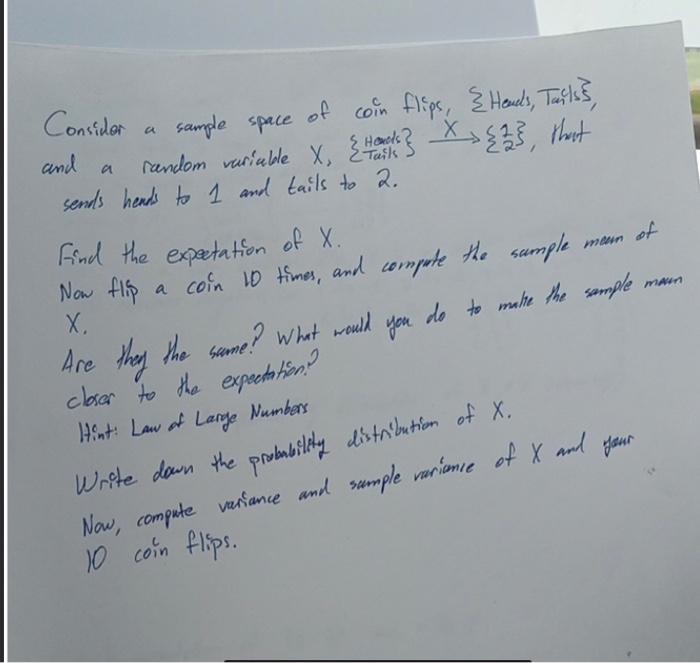 Consider a sample space of coin flips, {Heads, Tails},
and a random variable X, {Heads Tails} X→ {1 2}, that
sends heads to 1 and tails to 2.
Find the expectation of X.
Now flip a coin 10 times, and compute the sample mean of
X.
Are they the same? What would you do to make the sample mean
closer to the expectation?
Hint: Law of Large Numbers
Write down the probability distribution of X.
Now, compute variance and sample variance of X and your
10 coin flips.